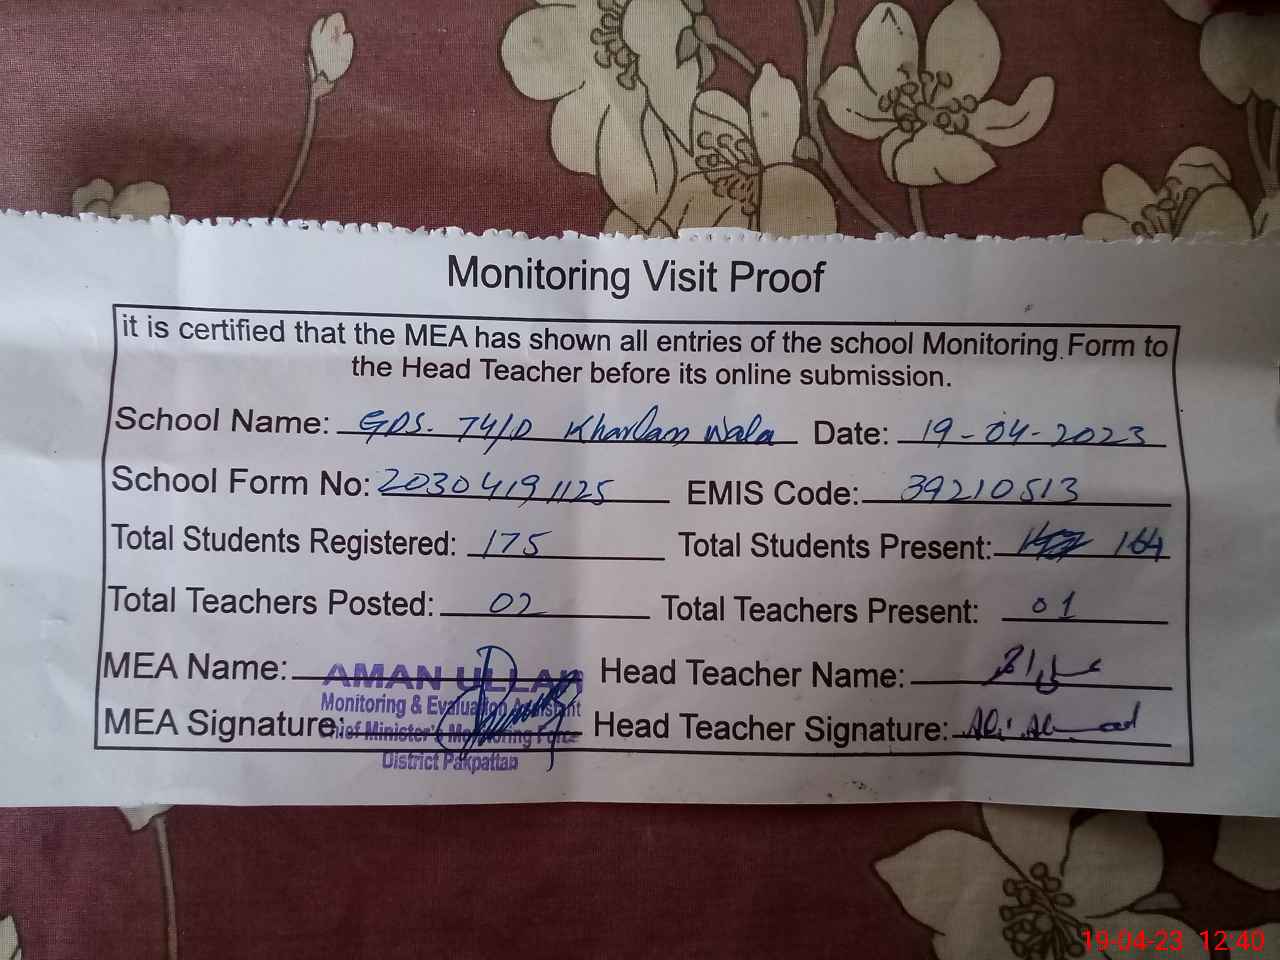 Monitoring Visit Proof
it is certified that the MEA has shown all entries of the school Monitoring Form to
the Head Teacher before its online submission.
School Name: GPS. 74/D Wala Date: 19-04-2023
School Form No: 20304191125 EMIS Code: 39210513
Total Students Registered: 175 Total Students Present: 164
Total Teachers Posted: 02 Total Teachers Present: 01
MEA Name: AMAN ULLAH Head Teacher Name: علی احمد
Monitoring & Evaluation Assistant
MEA Signature: Head Teacher Signature: Ali Ahmad
Chief Minister's Monitoring Force
District Pakpattan
19-04-23 12:40